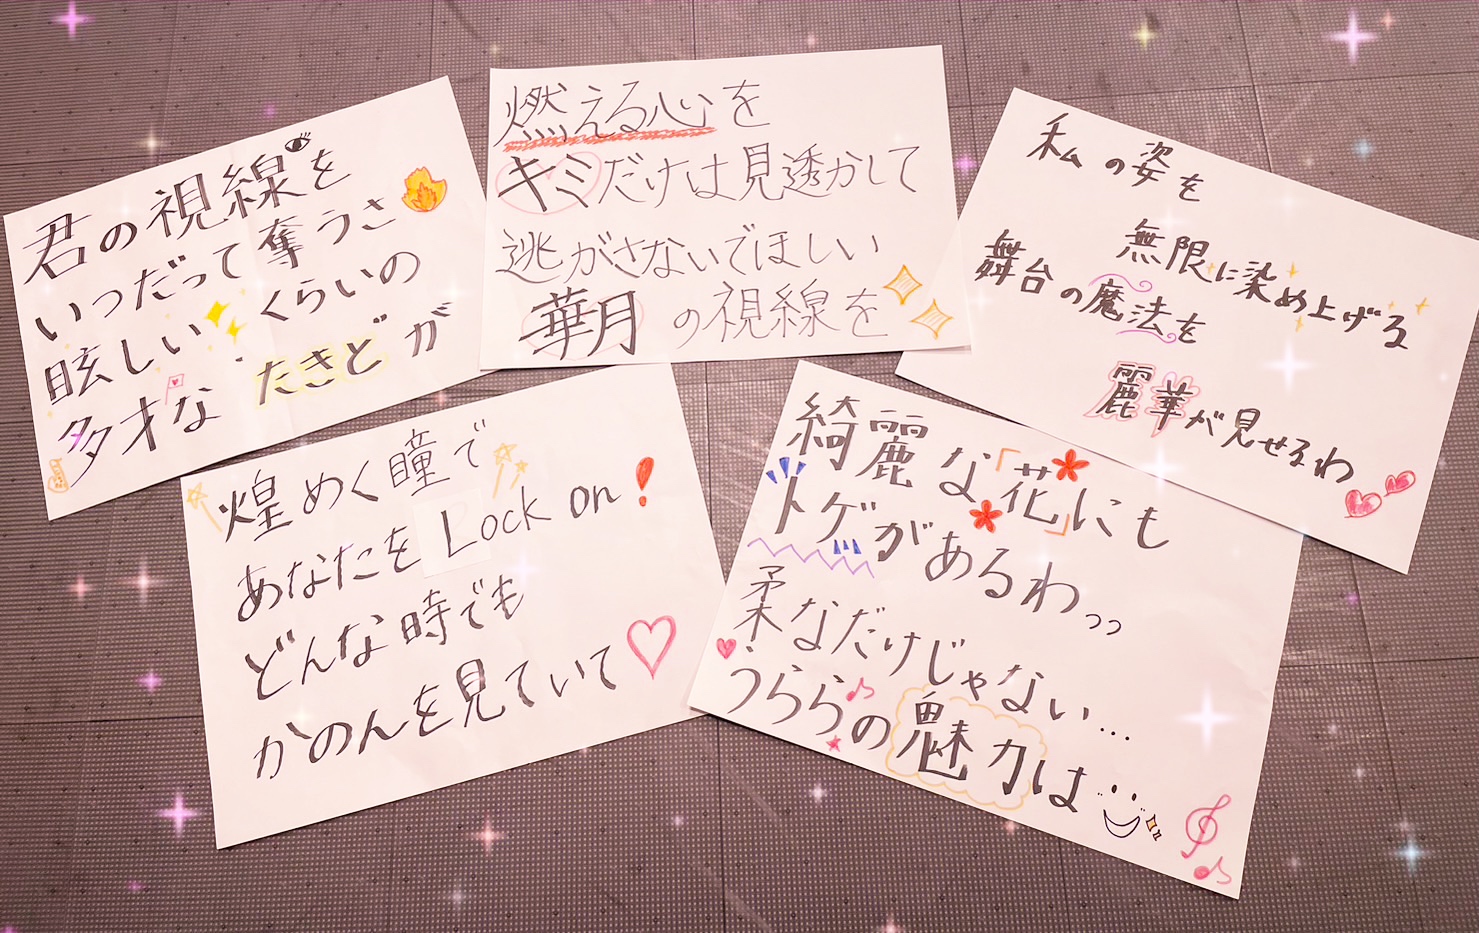 君の視線を
いつだって奪うさ
眩しいくらいの
多才なたきどが
燃える心を
キミだけは見透かして
逃がさないでほしい
華月の視線を
私の姿を
無限に染め上げる
舞台の魔法を
麗華が見せるわ
煌めく瞳で
あなたをLock on!
どんな時でも
かのんを見ていて
綺麗な「花」にも
トゲがあるわっっ
柔なだけじゃない…
うららの魅力は